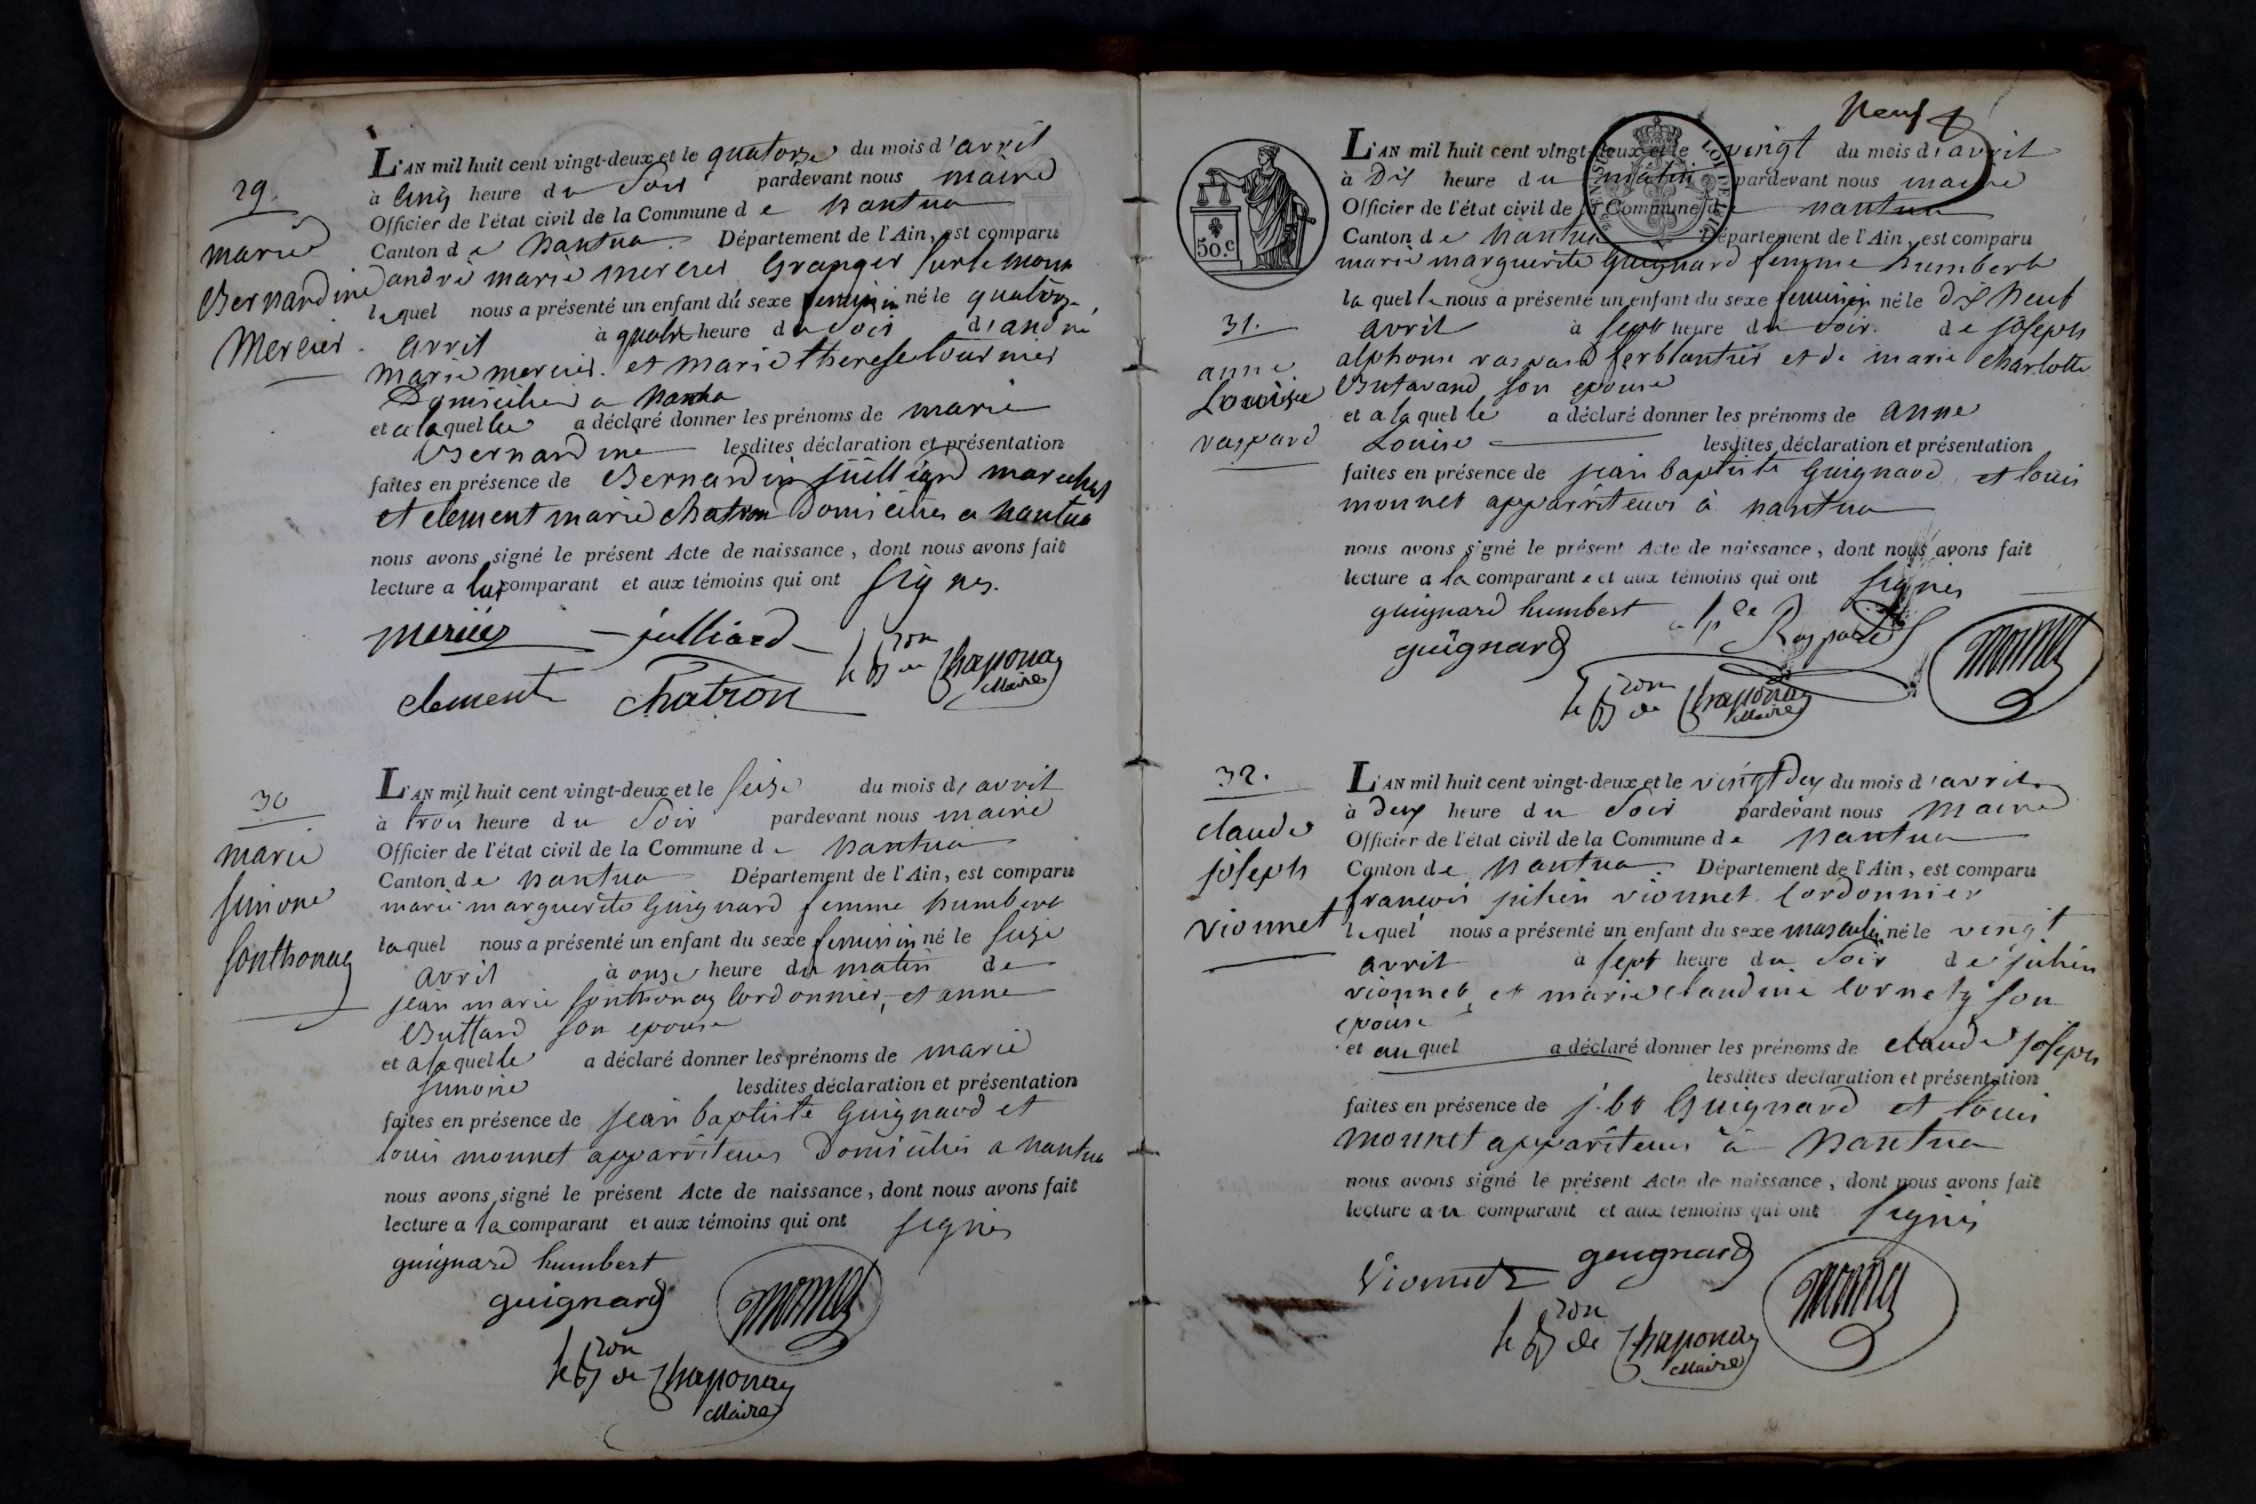 29.
marie
Bernardine
Mercier
L'AN mil huit cent vingt-deux et le quatorze du mois d'avril
à cinq heure du soir pardevant nous maire
Officier de l'état civil de la Commune de nantua
Canton de nantua Département de l'Ain, est comparu
andré marie mercier Granger sur le mont
lequel nous a présenté un enfant du sexe feminin né le quatorze
avril à quatre heure du soir d'andré
marie mercier et marie therese tournier
Domiciliés a nantua
et a laquelle a déclaré donner les prénoms de marie
Bernardine lesdites déclaration et présentation
faites en présence de Bernardin juilliard marechal
et clement marie chatron Domiciliés a nantua
nous avons signé le présent Acte de naissance, dont nous avons fait
lecture a lui comparant et aux témoins qui ont signés.
mercier juilliard
clement chatron le Bron de Thaponay
Maire
30
marie
simone
sonthonay
L'AN mil huit cent vingt-deux et le seize du mois d'avril
à trois heure du soir pardevant nous maire
Officier de l'état civil de la Commune de nantua
Canton de nantua Département de l'Ain, est comparu
marie marguerite Guignard femme humbert
laquel nous a présenté un enfant du sexe feminin né le seize
avril à onze heure du matin de
jean marie sonthonay cordonnier, et anne
Buttard son epouse
et a laquelle a déclaré donner les prénoms de marie
simone lesdites déclaration et présentation
faites en présence de jean baptiste Guignard et
louis monnet apparriteurs Domiciliés a nantua
nous avons signé le présent Acte de naissance, dont nous avons fait
lecture a la comparant et aux témoins qui ont signés
guignard humbert
guignard monnet
le Bron de Thaponay
Maire
neuf
50.c
31.
anne
Louise
raspard
L'AN mil huit cent vingt-deux et le vingt du mois d'avril
à Dix heure du matin pardevant nous maire
Officier de l'état civil de la Commune de nantua
Canton de nantua Département de l'Ain, est comparu
marie marguerite Guignard femme humbert
laquelle nous a présenté un enfant du sexe feminin né le dix neuf
avril à sept heure du soir de joseph
alphonse raspard ferblantier et de marie charlotte
Butavand son epouse
et a laquelle a déclaré donner les prénoms de anne
Louise lesdites déclaration et présentation
faites en présence de jean baptiste Guignard et louis
monnet apparriteurs à nantua
nous avons signé le présent Acte de naissance, dont nous avons fait
lecture a la comparante et aux témoins qui ont signés
guignard humbert Raspard
guignard monnet
le Bron de Thaponay
Maire
32.
claude
joseph
vionnet
L'AN mil huit cent vingt-deux et le vingt deux du mois d'avril
à deux heure du soir pardevant nous maire
Officier de l'état civil de la Commune de nantua
Canton de nantua Département de l'Ain, est comparu
francois julien vionnet cordonnier
lequel nous a présenté un enfant du sexe masculin né le vingt
avril à sept heure du soir de julien
vionnet et marie claudine cornety son
epouse
et auquel a déclaré donner les prénoms de claude joseph
lesdites declaration et présentation
faites en présence de j. bte Guignard et louis
monnet apparriteurs à nantua
nous avons signé le présent Acte de naissance, dont nous avons fait
lecture au comparant et aux témoins qui ont signés
Vionnet guignard
monnet
le Bron de Thaponay
Maire